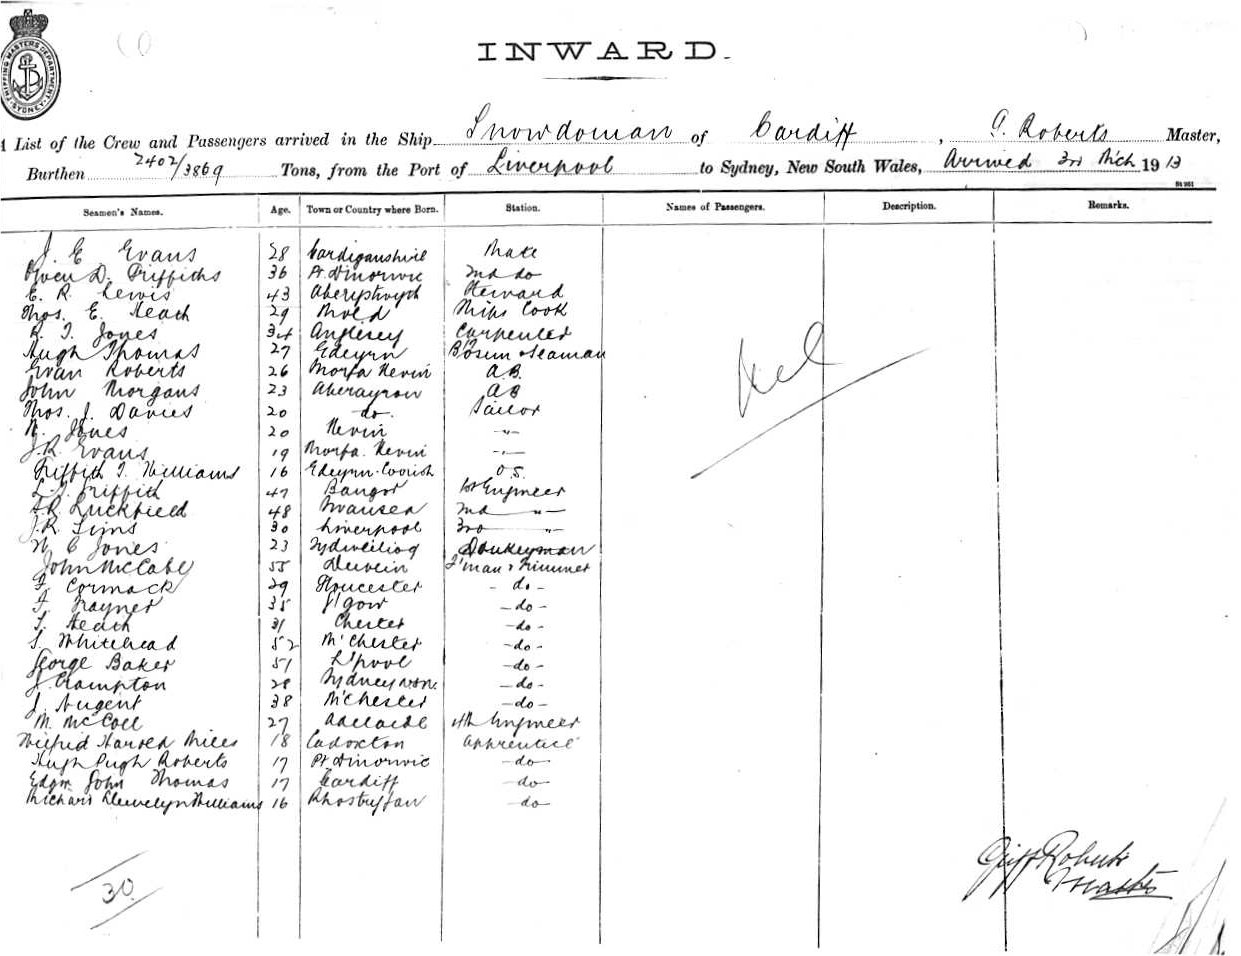 SHIPPING MASTERS DEPARTMENT SYDNEY
INWARD.
List of the Crew and Passengers arrived in the Ship Snowdonian of Cardiff, G. Roberts Master,
Burthen 2402/3869 Tons, from the Port of Liverpool to Sydney, New South Wales, Arrived 3rd Mch 1913
Seamen's Names. Age. Town or Country where Born. Station. Names of Passengers. Description. Remarks.
J. E Evans 28 Cardiganshire Mate
Owen D. Griffiths 36 Pt Dinorwic 2nd do
E. R. Lewis 43 Aberystwyth Steward
Thos. E. Heath 29 Mold Ships Cook
R. T. Jones 34 Anglesey Carpenter
Hugh Thomas 27 Edeyrn B'osun & Seaman
Evan Roberts 26 Morfa Nevin A.B.
John Morgans 23 Aberayron AB
Thos. J. Davies 20 -do- Sailor
Jones 20 Nevin -"-
J. R. Evans 19 Morfa. Nevin -"-
Griffith T. Williams 16 Edeyrn O.S.
Griffith 47 Bangor 1st Engineer
48 Swansea 2nd -"-
J. R. Sims 30 Liverpool 3rd -"-
W E Jones 23 Donkeyman
John McCabe 55 F'man & Trimmer
F Cormack 29 Gloucester - do -
F. Trayner 35 G'gow - do -
T. Heath 31 Chester - do -
S. Whitehead 52 M'Chester - do -
George Baker 51 L'pool - do -
J. Crampton 28 Sydney - do -
J. Nugent 38 M'Chester - do -
M. McColl 27 Adelaide 4th Engineer
Wilfrid Harold Miles 18 Cadoxton Apprentice
Hugh Pugh Roberts 17 Pt Dinorwic - do -
Edgar John Thomas 17 Cardiff - do -
Richard Llewelyn Williams 16 Rhostryfan - do -
Nil
Griff Roberts
Master
30